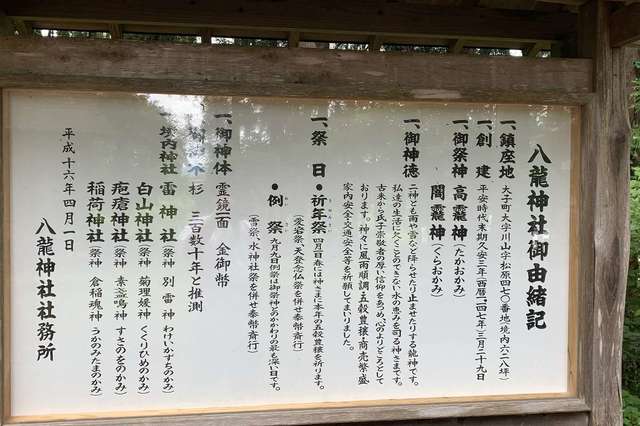 八龍神社御由緒記
一、鎮座地 大子町大字川山字松原四七〇番地境内六二八坪
一、創 建 平安時代末期久安三年(西暦一一四七年)三月二十九日
一、御祭神 高龗神(たかおかみ)
闇龗神(くらおかみ)
一、御神徳 二神とも雨や雪などを降らせたり止ませたりする龍神です。
私達の生活に欠くことのできない水の恵みを司る神さまです。
古来から氏子崇敬者の厚い信仰をあつめ、心のよりどころとして
おります。神々に風雨順調・五穀豊穣・商売繁盛
家内安全・交通安全等を祈願してまいりました。
一、祭 日 ・祈年祭 四月春には神さまに本年の五穀豊穣を祈ります。
(愛宕祭・天登念仏祭を併せ奉幣斎行)
・例 祭 九月九日例祭は御祭神とのかかわりの最も深い日です。
(雷祭・水神社祭を併せ奉幣斎行)
一、御神体 霊鏡二面 金御幣
木 杉 三百数十年と推測
境内神社 雷 神 社 (祭神 別雷神 わけいかずちのかみ)
白山神社 (祭神 菊理媛神 くくりひめのかみ)
疱瘡神社 (祭神 素盗鳴神 すさのをのかみ)
稲荷神社 (祭神 倉稲魂神 うかのみたまのかみ)
平成十六年四月一日
八龍神社社務所